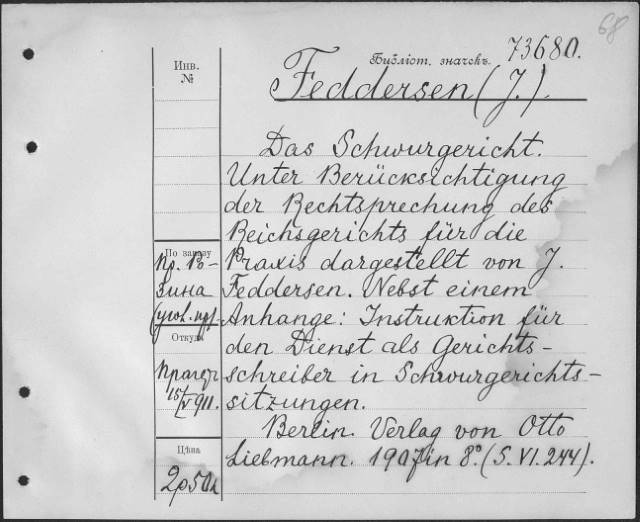 68
Инв.
№
Библіот. значекъ.
73680.
Feddersen (J.)
Das Schwurgericht.
Unter Berücksichtigung
der Rechtsprechung des
Reichsgerichts für die
Praxis dargestellt von J.
Feddersen. Nebst einem
Anhange: Instruktion für
den Dienst als Gerichts-
schreiber in Schwurgerichts-
sitzungen.
Berlin. Verlag von Otto
Liebmann. 1907 in 8° (S. VI. 244).
По заказу
Пр. Во-
зина
Откуда
15/V 911.
Цѣна
2р50к